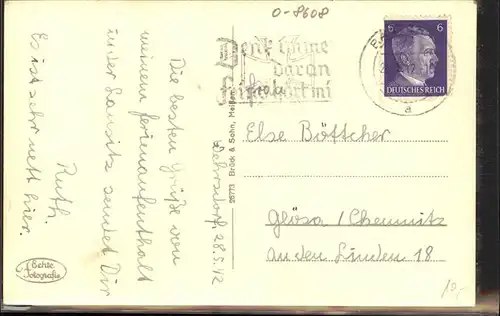 o-8608
Denk imme
daran
hört mi
6 6
DEUTSCHES REICH
a
28.5.42
Die besten Grüße von
meinem Ferienaufenthalt
in der Lausitz sendet Dir
Ruth.
Es ist sehr nett hier.
26773 Brück & Sohn, Meißen
Else Böttcher
Glösa/Chemnitz
an den Linden 18
Echte
Fotografie
12,-